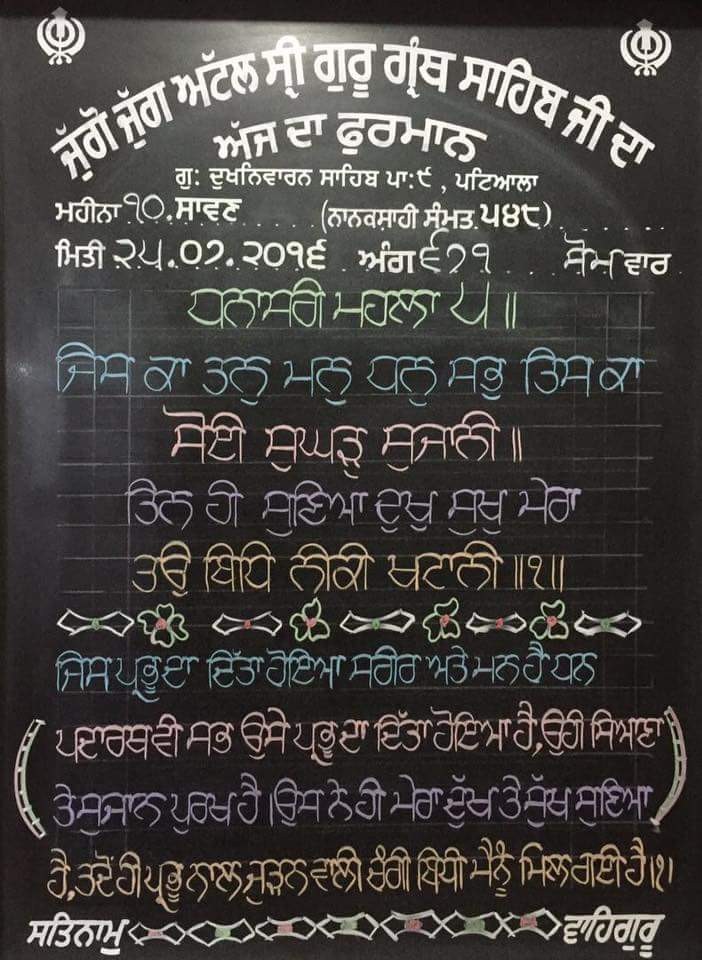 ਜੁੱਗੋ ਜੁੱਗ ਅਟੱਲ ਸ੍ਰੀ ਗੁਰੂ ਗ੍ਰੰਥ ਸਾਹਿਬ ਜੀ ਦਾ
ਅੱਜ ਦਾ ਫੁਰਮਾਨ
ਗੁ: ਦੁਖਨਿਵਾਰਨ ਸਾਹਿਬ ਪਾ:੯, ਪਟਿਆਲਾ
ਮਹੀਨਾ ੧੦. ਸਾਵਣ (ਨਾਨਕਸ਼ਾਹੀ ਸੰਮਤ ੫੪੮)
ਮਿਤੀ ੨੫.੦੭.੨੦੧੬ ਅੰਗ ੬੭੧ ਸੋਮ ਵਾਰ
ਧਨਾਸਰੀ ਮਹਲਾ ੫ ॥
ਜਿਸ ਕਾ ਤਨੁ ਮਨੁ ਧਨੁ ਸਭੁ ਤਿਸ ਕਾ
ਸੋਈ ਸੁਘੜੁ ਸੁਜਾਨੀ ॥
ਤਿਨ ਹੀ ਸੁਣਿਆ ਦੁਖੁ ਸੁਖੁ ਮੇਰਾ
ਤਉ ਬਿਧਿ ਨੀਕੀ ਖਟਾਨੀ ॥੧॥
ਜਿਸ ਪ੍ਰਭੂ ਦਾ ਦਿੱਤਾ ਹੋਇਆ ਸਰੀਰ ਅਤੇ ਮਨ ਹੈ ਧਨ
ਪਦਾਰਥ ਵੀ ਸਭ ਉਸੇ ਪ੍ਰਭੂ ਦਾ ਦਿੱਤਾ ਹੋਇਆ ਹੈ, ਉਹੀ ਸਿਆਣਾ
ਤੇ ਸੁਜਾਨ ਪੁਰਖ ਹੈ। ਉਸ ਨੇ ਹੀ ਮੇਰਾ ਦੁੱਖ ਤੇ ਸੁੱਖ ਸੁਣਿਆ
ਹੈ, ਤਦੋਂ ਹੀ ਪ੍ਰਭੂ ਨਾਲ ਜੁੜਨ ਵਾਲੀ ਚੰਗੀ ਬਿਧੀ ਮੈਨੂੰ ਮਿਲ ਗਈ ਹੈ।੧।
ਸਤਿਨਾਮੁ ਵਾਹਿਗੁਰੂ